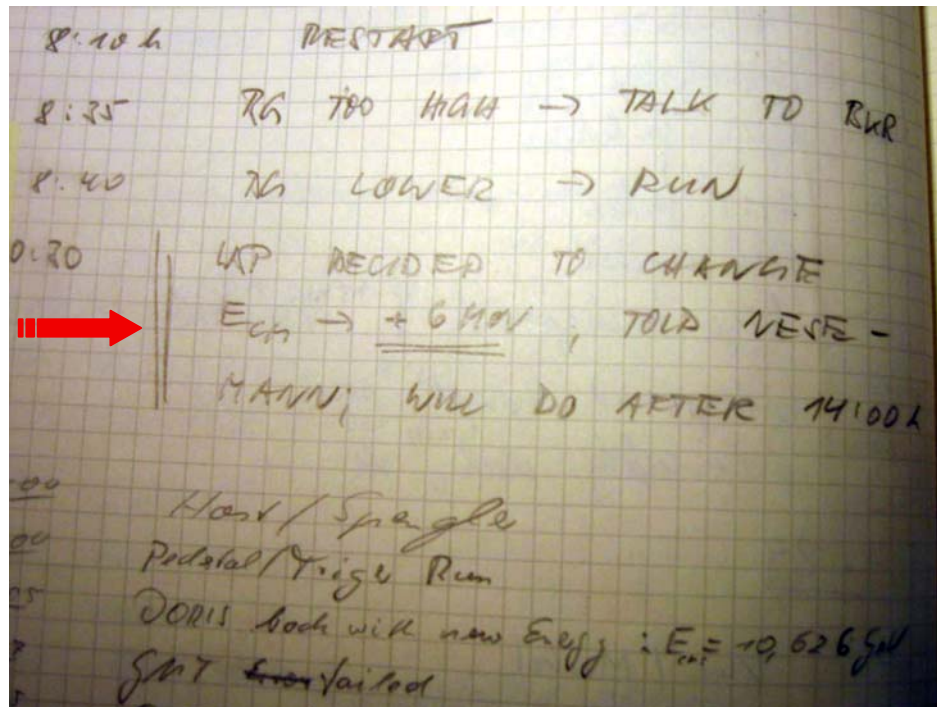 8:10 h RESTART
8:35 RG TOO HIGH → TALK TO BKR
8:40 RG LOWER → RUN
0:20 DECIDED TO CHANGE
E → + 6 MeV ; TOLD NESE-
MANN; WILL DO AFTER 14:00 h
00 Spengler
00 Pedestal/Trigg Run
DORIS back with new Energy : = 10,626 GeV
failed